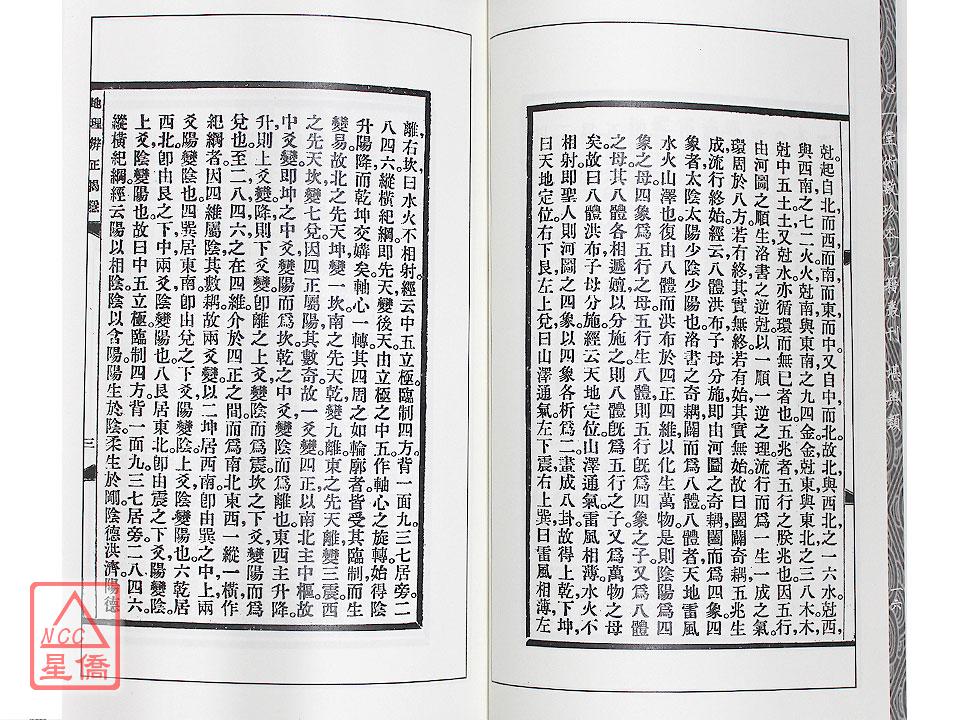 尅起自北而西而南而東而中又自中而北故北與西北之一六水尅西
與西南之七二火火尅南與東南之九四金金尅東與東北之三八木木
尅中五土土又尅水亦循環而無已者也五兆者五行之朕兆也五行
由河圖之順生洛書之逆尅以一順一逆之理流行而爲一生一成之氣
環周於八方若有終其實無終若有始其實無始故曰闔闢奇耦五兆生
成流行終始經云八體洪布子母分施即由河圖之奇耦闔而爲四象四
象者太陰太陽少陰少陽也洛書之奇耦闢而爲八體八體者天地雷風
水火山澤也復由八體而洪布於四正四維以化生萬物是則陰陽爲四
象之母四象爲五行之母五行生八體則五行旣爲四象之子又爲八體
之母其八體各相遞嬗以分施之則八體旣爲五行之子又爲萬物之母
矣故曰八體洪布子母分施經云天地定位山澤通氣雷風相薄水火不
相射即聖人則河圖之四象以四象各析爲二畫成八卦故得上乾下坤
曰天地定位右下艮左上兌曰山澤通氣左下震右上巽曰雷風相薄左
離右坎曰水火不相射經云中五立極臨制四方背一面九三七居旁二
八四六縱橫紀綱即先天變後天由立極之中五作軸心之旋轉始得陰
升陽降而乾坤交媾矣軸心一轉其四周之如輪廓者皆受其臨制而生
變易故北之先天坤變一坎南之先天乾變九離東之先天離變三震西
之先天坎變七兌因四正屬陽其數奇故一爻變四正以南北主中樞故
中爻變即坤之中爻變陽而爲坎乾之中爻變陰而爲離也東西主升降
升則上爻變降則下爻變即離之上爻變陰而爲震坎之下爻變陽而爲
兌也至二八四六之在四維介於四正之間而爲南北東西一縱一橫作
紀綱者因四維屬陰其數耦故兩爻變以二坤居西南即由巽之中上兩
爻陽變陰也四巽居東南即由兌之下爻陽變陰上爻陰變陽也六乾居
西北即由艮之下中兩爻陰變陽也八艮居東北即由震之下爻陽變陰
上爻陰變陽也故曰中五立極臨制四方背一面九三七居旁二八四六
縱橫紀綱經云陽以相陰陰以含陽陽生於陰柔生於剛陰德洪濟陽德
地理辨正揭隱
三
NCC
星僑